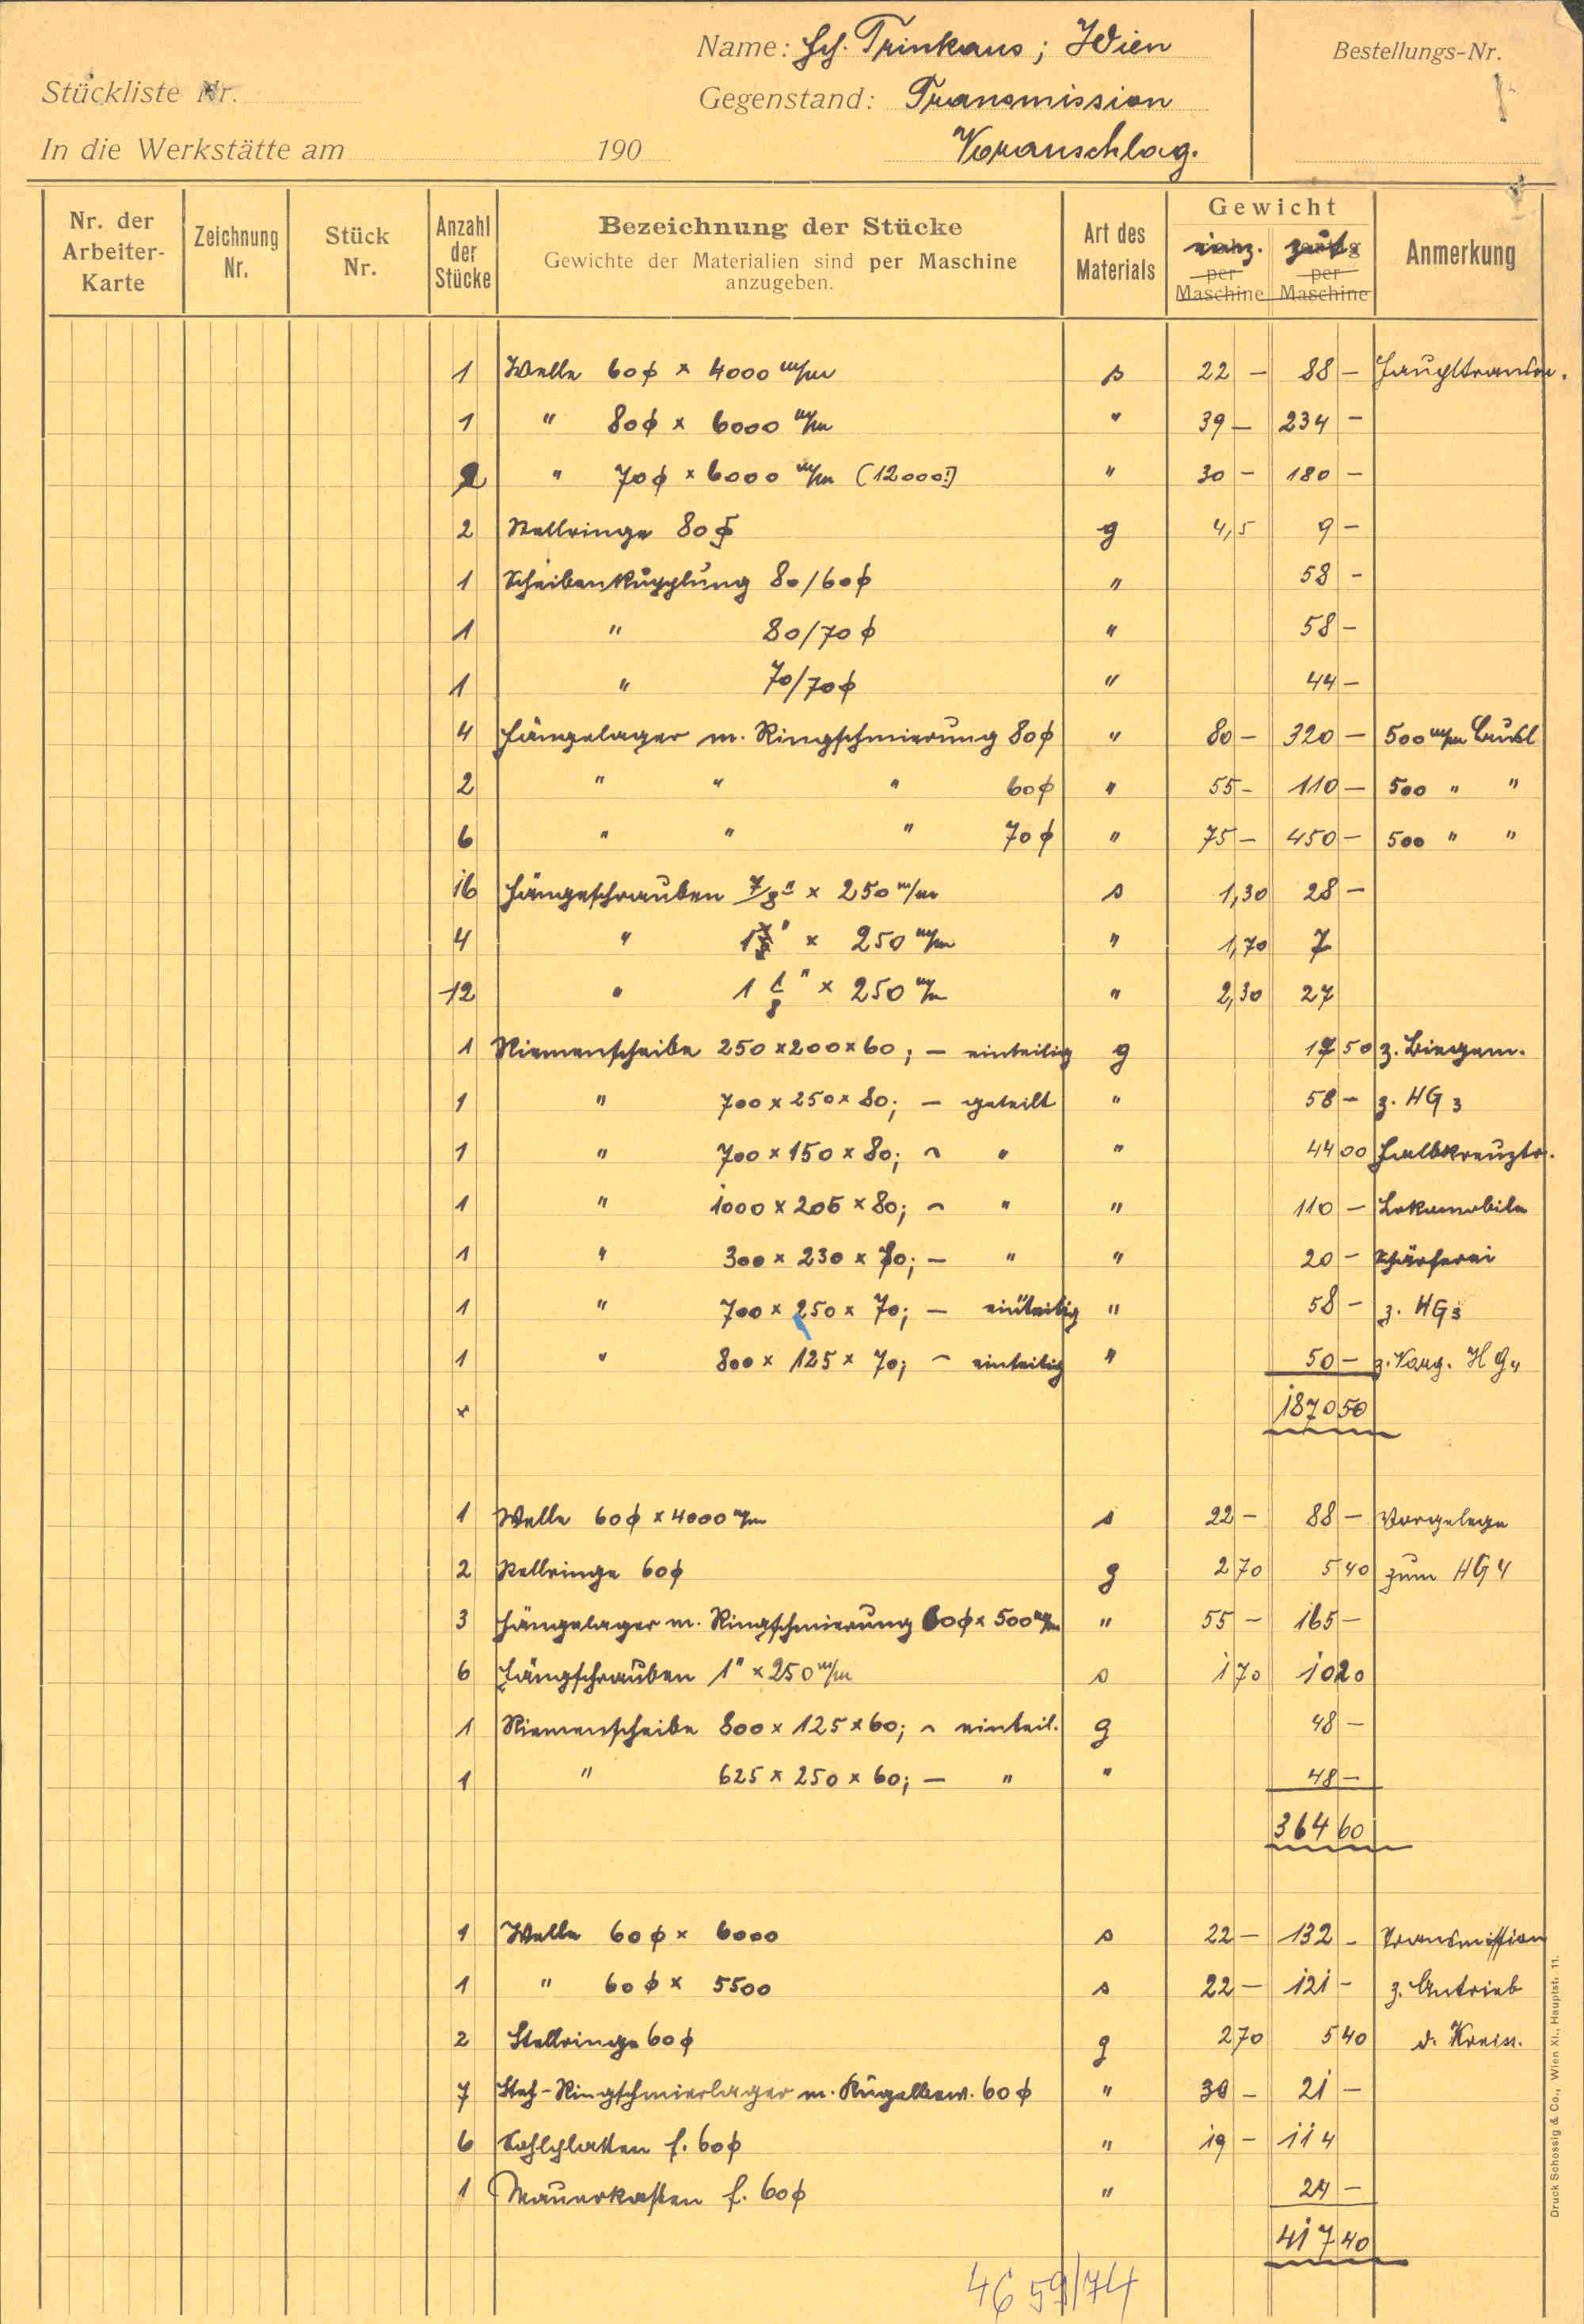 Name: Hch. Trinkaus; Wien
Bestellungs-Nr.
Stückliste Nr.
Gegenstand: Transmission
In die Werkstätte am 190
Voranschlag.
Nr. der Arbeiter-Karte
Zeichnung Nr.
Stück Nr.
Anzahl der Stücke
Bezeichnung der Stücke
Gewichte der Materialien sind per Maschine anzugeben.
Art des Materials
Gewicht
einz. per Maschine
per Maschine
Anmerkung
1 Welle 60ϕ × 4000 m/m s 22 – 88 – Haupttransm.
1 " 80ϕ × 6000 m/m " 39 – 234 –
2 " 70ϕ × 6000 m/m (12000!) " 30 – 180 –
2 Stellringe 80ϕ g 4,5 9 –
1 Scheibenkupplung 80/60ϕ " 58 –
1 " 80/70ϕ " 58 –
1 " 70/70ϕ " 44 –
4 Hängelager m. Ringschmierung 80ϕ " 80 – 320 – 500 m/m Ausl
2 " " " 60ϕ " 55 – 110 – 500 " "
6 " " " 70ϕ " 75 – 450 – 500 " "
16 Hängeschrauben 7/8" × 250 m/m s 1,30 28 –
4 " × 250 m/m " 1,70 7
12 " 1 1/8" × 250 m/m " 2,30 27
1 Riemenscheibe 250 × 200 × 60; – einteilig g 50 z. Biegem.
1 " 700 × 250 × 80; – geteilt " 58 – z. HG 3
1 " 700 × 150 × 80; ⌢ " " 44 00 Halbkreuztr.
1 " 1000 × 205 × 80; ⌢ " " 110 – Lokomobile
1 " 300 × 230 × 70; – " " 20 – Schärferei
1 " 700 × 250 × 70; – einteilig " 58 – z. HG3
1 " 800 × 125 × 70; ⌢ einteilig " 50 – z. Vorg. HG4
× 1870 50
1 Welle 60ϕ × 4000 m/m s 22 – 88 – Vorgelege
2 Stellringe 60ϕ g 2 70 5 40 zum HG 4
3 Hängelager m. Ringschmierung 60ϕ × 500 m/m " 55 – 165 –
6 Hängschrauben 1" × 250 m/m s 1 70 10 20
1 Riemenscheibe 800 × 125 × 60; ⌢ einteil. g 48 –
1 " 625 × 250 × 60; – " " 48 –
364 60
1 Welle 60ϕ × 6000 s 22 – 132 – Transmission
1 " 60ϕ × 5500 s 22 – 121 – z. Antrieb
2 Stellringe 60ϕ g 2 70 5 40 d. Kreiss.
7 Steh-Ringschmierlager m. Kugelbew. 60ϕ " 30 – 21 –
6 Sohlplatten f. 60ϕ " 19 – 114
1 Mauerkasten f. 60ϕ " 24 –
417 40
4659/74
Druck Schossig & Co., Wien XI., Hauptst. 11.